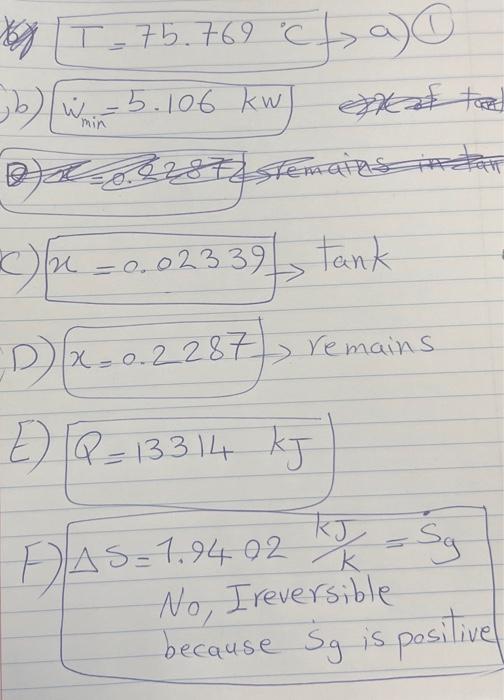 T = 75.769 °C → a) ①
b) Ẇmin = 5.106 kW
x = 0.2287 remains in tan
C) x = 0.02339 → tank
D) x = 0.2287 → remains
E) Q = 13314 kJ
F) ΔS = 1.9402 kJ/K = Ṡg
No, Ireversible
because Ṡg is positive